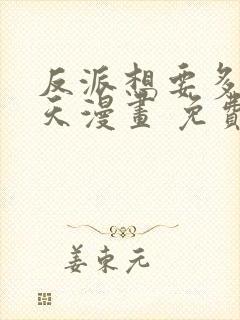 反派想要多
天漫畫 免費
姜東元